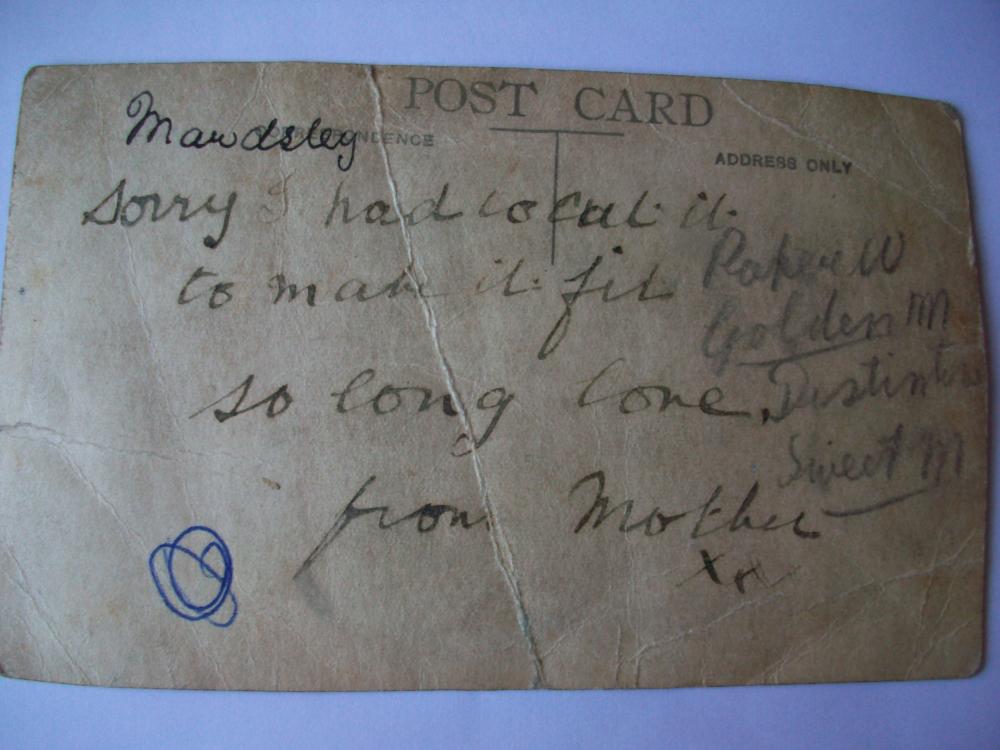 POST CARD
CORRESPONDENCE
ADDRESS ONLY
Mawdsley
Sorry I had to cut it
to make it fit
so long love.
from Mother
xx
W
Golden M
Sweet M